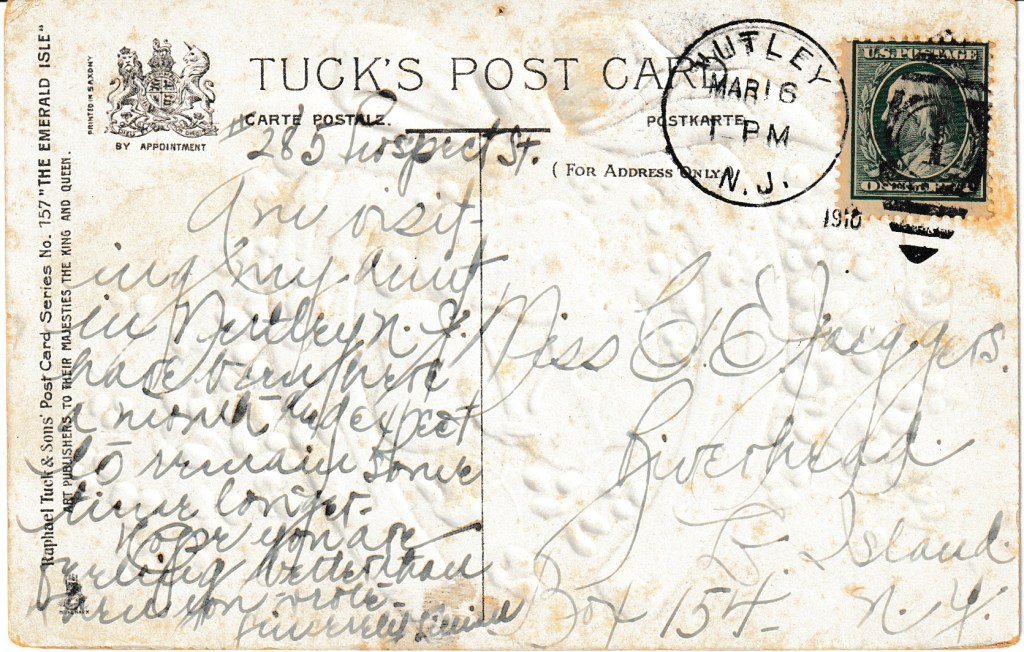 TUCK'S POST CARD
CARTE POSTALE. POSTKARTE
(FOR ADDRESS ONLY)
BY APPOINTMENT
PRINTED IN SAXONY
DIEU DROIT
Raphael Tuck & Sons' Post Card Series No. 157 "THE EMERALD ISLE"
ART PUBLISHERS TO THEIR MAJESTIES THE KING AND QUEEN.
NUTLEY
MAR 16
1 - PM
N.J.
1910
U.S. POSTAGE
285 Prospect St.
Am visit-
ing my aunt
in Nutley N. J.
have been here
a month and expect
to remain some
time longer.
Hope you are
feeling better than
when you wrote
Sincerely
Miss C. E. Jaggers
Riverhead
L. Island
Box 154- N. Y.